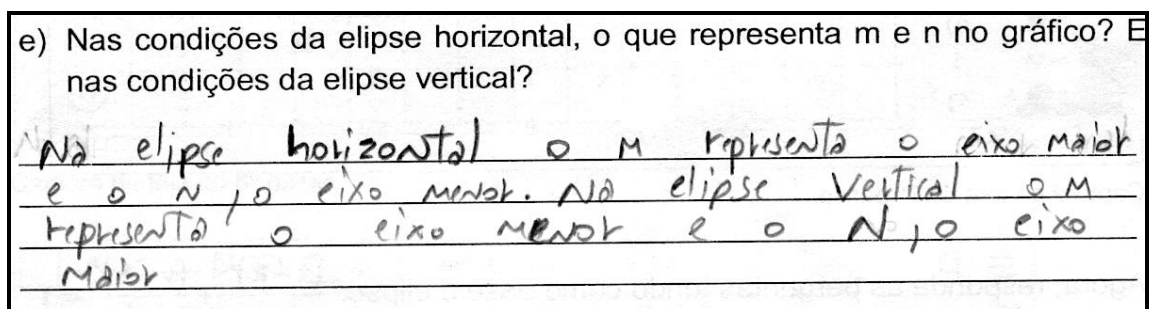 e) Nas condições da elipse horizontal, o que representa m e n no gráfico? E
nas condições da elipse vertical?
Na elipse horizontal o M representa o eixo maior
e o N, o eixo menor. Na elipse vertical o M
representa o eixo menor e o N, o eixo
maior